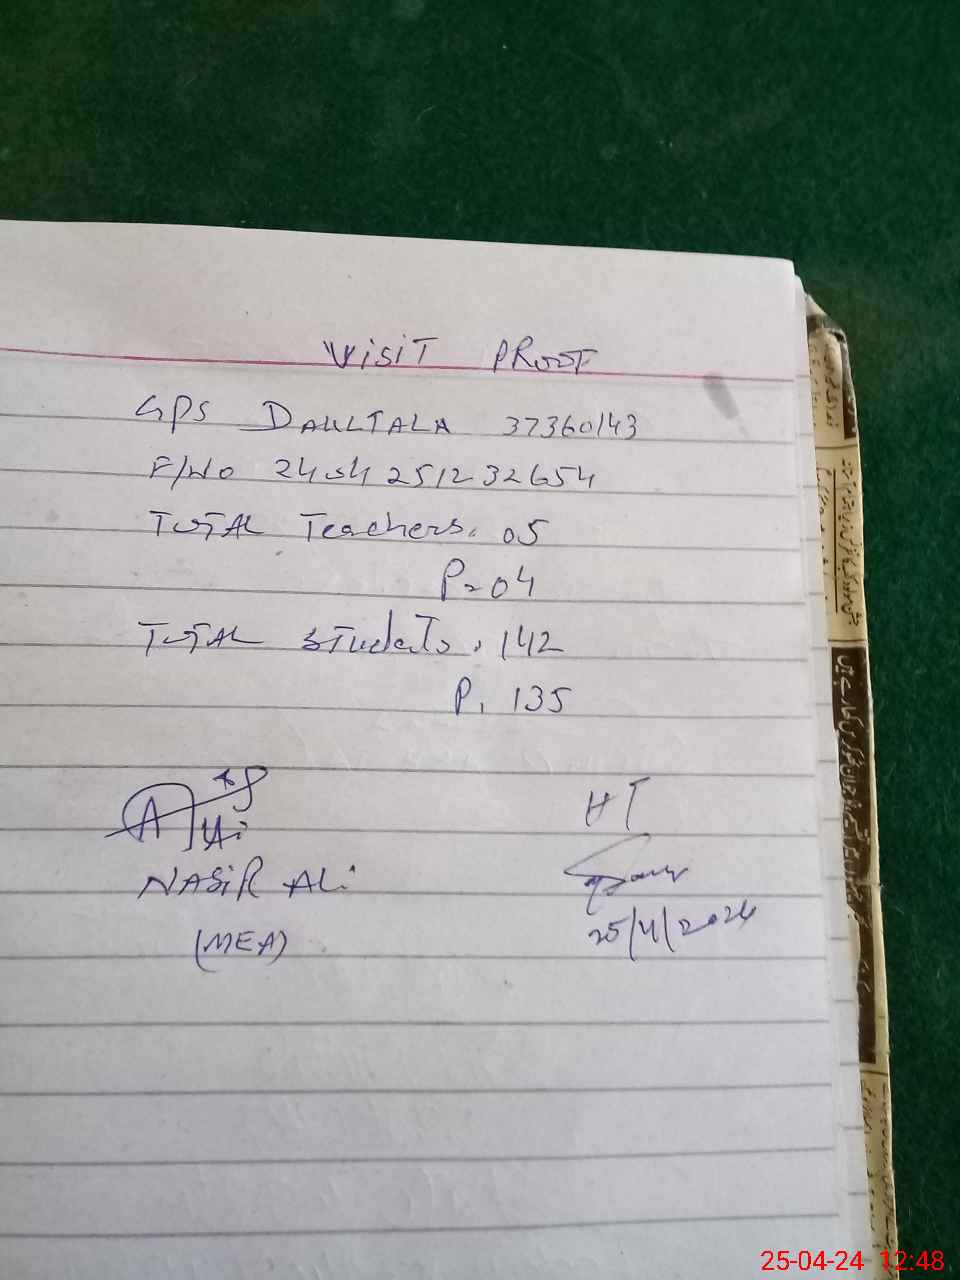 VISIT PROOF
GPS DAULTALA 37360143
F/No 2404251232654
TOTAL Teachers. 05
P=04
TOTAL Students. 142
P. 135
HT
NASIR ALi
(MEA)
25/4/2024
25-04-24 12:48